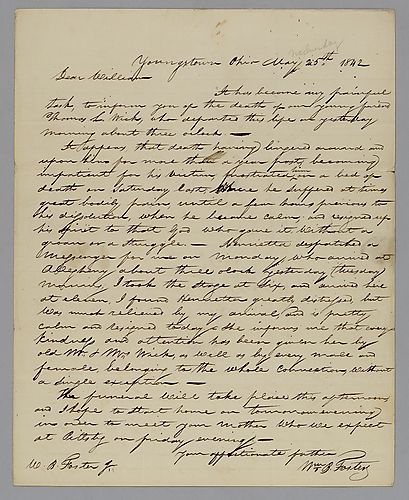 Wednesday
Youngstown Ohio May 25th 1842
Dear William
It has become my painful
task, to inform you of the death of our young friend
Thomas L. Wick, who departed this life on yesterday
morning about three oclock —
It appears, that death having lingered around and
upon him for more than a year past, becoming
impatient for his victim, prostrated him on a bed of
death on Saturday last, where he suffered at times
great bodily pains until a few hours previous to
his dissolution, when he became calm, and resigned up
his spirit to that God who gave it without a
groan or a struggle. — Henrietta despatched a
Messenger for me on Monday, who arrived at
Allegheny about three oclock yesterday (tuesday)
morning I took the stage at six, and arrived here
at eleven, I found Henrietta greatly distressed but
was much relieved by my arrival, and is pretty
calm and resigned today, She informs me that every
kindness and attention has been given her by
old Mr. & Mrs Wick, as well as by every male and
female belonging to the whole connections, without
a single exception —
The funeral will take place this afternoon,
and I hope to start home on tomorrow evening
in order to meet your Mother who we expect
at Pittsbg on friday evening —
Your affectionate father
W. B. Foster Jr. Wm. B. Foster